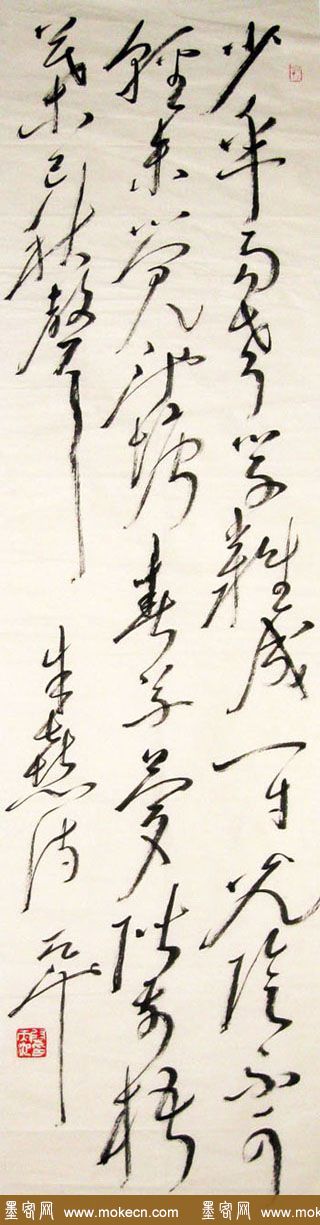 少年易老学難成一寸光陰不可
輕未觉池塘春草夢階前梧
葉已秋聲
朱熹诗
墨客网 www.mokecn.com 墨客网 www.mokecn.com